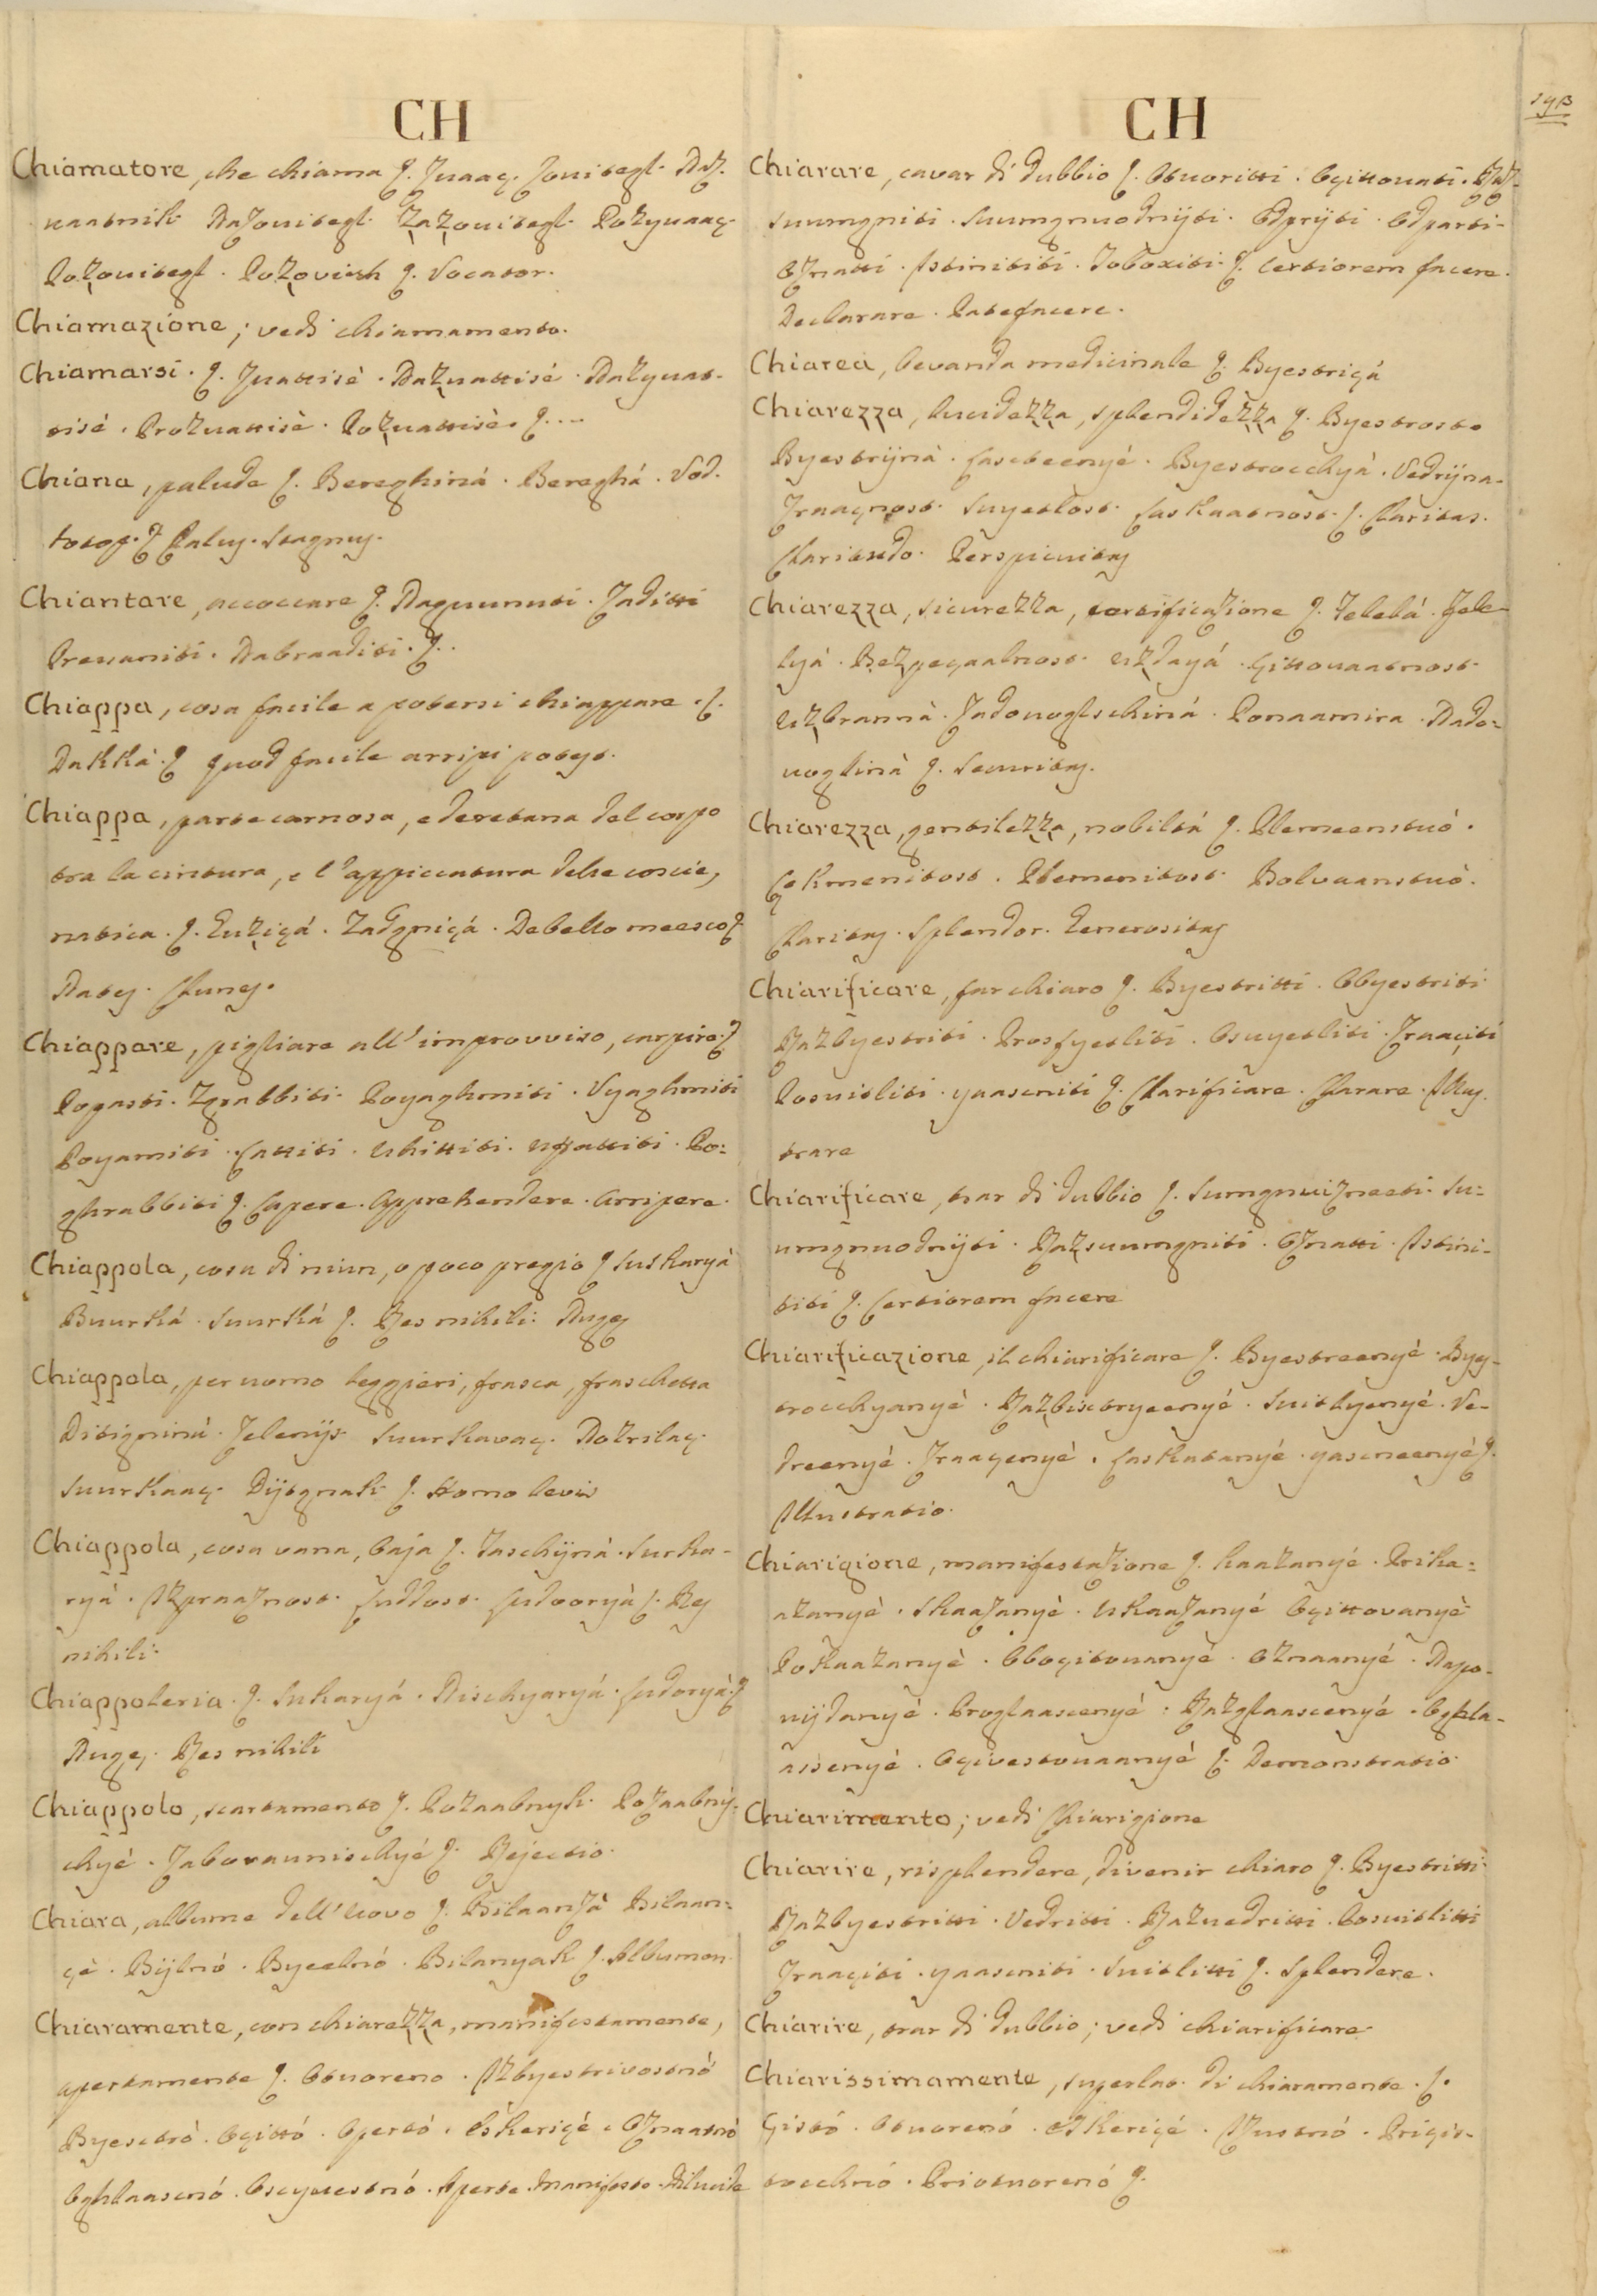 CH
Chiamatore, che chiama ſ. Zvaaç. Zovitegl. Naz-
vaatnik. Nazovitegl. Zazovitegl. Pozyvaaç.
Pozovitegl. Pozovich ſ. Vocator.
Chiamazione; vedi chiamamento.
Chiamarsi. ſ. Zvattisè. Nazvattisè. Nazyvat-
tisè. Prozvattisè. Pozvattisè. ſ...
Chiana, palude ſ. Bereghinà. Bereghà. Vod.
ſ Palus. Stagnus.
Chiantare, accoccare ſ. Zaditti
Prevariti. Nabraaditi. ſ.
Chiappa, cosa facile a potersi chiappare. ſ.
Dakkà. ſ quod facile arripi potest.
Chiappa, parte carnosa, e deretana del corpo
tra la cintura, e l'appiccatura delle coscie,
natica. ſ. Guziçà. Zadgniçà. Debello meesco ſ
Nates. Clunes.
Chiappare, pigliare all'improvviso, carpire ſ
Popasti. Zgrabbiti. Poyaghmiti. Vyaghmiti
Poyamiti. Cattiti. Uhittiti. Uffattiti. Po-
ghrabbiti ſ. Capere. Apprehendere. Arripere.
Chiappola, cosa di niun, o poco pregio ſ Suskaryà
Buurkà. Suurkà ſ. Res nihili. Nugæ
Chiappola, per uomo leggieri, frasca, fraschetta
Ditigninà. Zelenijs. Suurkavaç. Nozrilaç.
Suurkaaç. Dijtgnak ſ. Homo levis
Chiappola, cosa vana, baja ſ. Taschijnà. Surka-
ryà. Izpraaznost. Luddost. Ludooryà ſ. Res
nihili.
Chiappoleria. ſ. Sukaryà. Nischyaryà. Ludoryà. ſ
Nugæ. Res nihili
Chiappolo, scartamento ſ. Pozaabnyk. Pozaabny-
chyè. Zaboravnischyè ſ. Rejectio.
Chiara, albume dell'uovo ſ. Bilaanzà Bilaan-
çè. Bijlnò. Byeelnò. Bilanyak ſ. Albumen.
Chiaramente, con chiarezza, manifestamente,
apertamente ſ. Otvoreno. Izbyestrivostnò
Byesctrò. Oçittò. Opertò. Iskeriçè. Oznaatnò
Oghlaasenò. Aperte. Manifeste. Dilucide
CH
Chiarare, cavar di dubbio ſ. Otvoritti. Oçittovati. Raz-
suumgniti. Suumgnuodnijti. Odprijti. Odparti-
Oznatti. Istinititi. Toboxiti. ſ. Certiorem facere.
Declarare. Patefacere.
Chiarea, bevanda medicinale ſ. Byestriçà
Chiarezza, lucidezza, splendidezza ſ. Byestrost.
Byestrijnà. Lascteenyè. Byestrocchyà. Vedrijna.
Zraaçnost. Suyetlost. Laskaatnost. ſ. Claritas.
Claritudo. Perspicuitas
Chiarezza, sicurezza, certificazione ſ. Telelà. Jele-
lyà. Bezpeçaalnost. Uzdayà. Çittovaatnost.
Uzbrannà. Zadovoglschinà. Ponaamira. Nado-
voglinà ſ. Securitas.
Chiarezza, gentilezza, nobiltà ſ. Plemeenstvò.
Plemenitost. Bolvaanstvò.
Claritas. Splendor. Generositas
Chiarificare, far chiaro ſ. Byestritti. Obyestriti
Razbyestriti. Prosfyetliti. Osuyetliti. Zraaçiti
Posuitliti. yaasniti ſ. Clarificare. Clarare. Illus-
trare
Chiarificare, trar di dubbio ſ. Su-
umgnuodnijti. Razsuumgniti. Oznatti. Istini-
titi ſ. Certiorem facere
Chiarificazione, il chiarificare ſ. Byestreenyè. Byes-
trocchyanyè. Razbisctryeenyè. Suitlyenyè. Ve-
dreenyè. Zraaçenyè. Laskatanyè. yasneenyè ſ.
Illustratio.
Chiarigione, manifestazione ſ. Kaazanyè. Prika-
azanyè. Skaazanyè. Ukaazanyè Oçittovanyè
Pokaazanyè. Oboçitovanyè. Oznaanyè. Napo-
vijdanyè. Proglaascenyè. Razglaascenyè. Oghla-
assenyè. Oçivestovaanyè ſ. Demonstratio
Chiarimento; vedi Chiarigione
Chiarire, risplendere, divenir chiaro ſ. Byestritti.
Razbyestritti. Vedritti. Razvedritti. Posuitlitti
Zraaçiti. yaasniti. Suitlitti ſ. Splendere.
Chiarire, trar di dubbio; vedi chiarificare.
Chiarissimamente, superlat. di chiaramente. ſ.
Çistò. Otvorenò. Iskeriçè. Izustnò. Priçis-
tocchnò. Priotvorenò ſ.